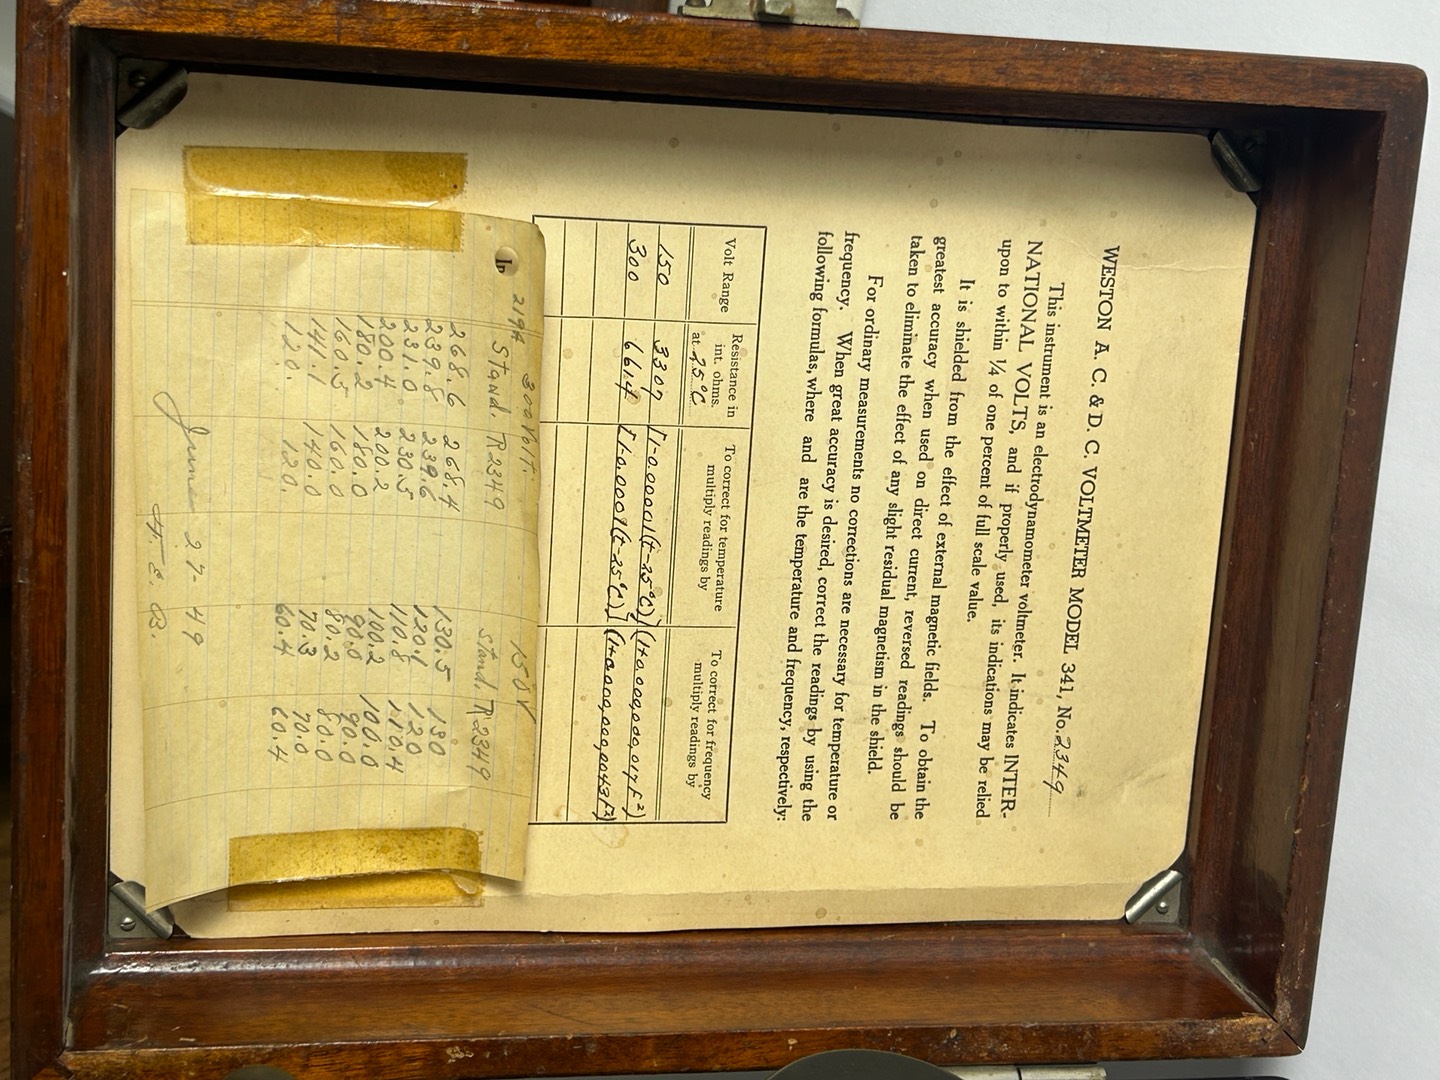 WESTON A. C. & D. C. VOLTMETER MODEL 341, No. 2349
This instrument is an electrodynamometer voltmeter. It indicates INTER-
NATIONAL VOLTS, and if properly used, its indications may be relied
upon to within ¼ of one percent of full scale value.
It is shielded from the effect of external magnetic fields. To obtain the
greatest accuracy when used on direct current, reversed readings should be
taken to eliminate the effect of any slight residual magnetism in the shield.
For ordinary measurements no corrections are necessary for temperature or
frequency. When great accuracy is desired, correct the readings by using the
following formulas, where and are the temperature and frequency, respectively:
Volt Range Resistance in int. ohms. at 25°C To correct for temperature multiply readings by To correct for frequency multiply readings by
150 3307 [1-0.0001(t-25°C)] (1+0.000,000,017f²)
300 6614 [1-0.0007(t-25°C)] (1+0.000,000,0043f²)
300 Volt. 150V
Stand. R2349 Stand. R2349
268.6 268.4 130.5 130
239.8 239.6 120.1 120
231.0 230.5 110.8 110.4
200.4 200.2 100.2 100.0
180.2 180.0 90.0 90.0
160.5 160.0 80.2 80.0
141.1 140.0 70.3 70.0
120. 120. 60.4 60.4
June 27-49
H. E. B.